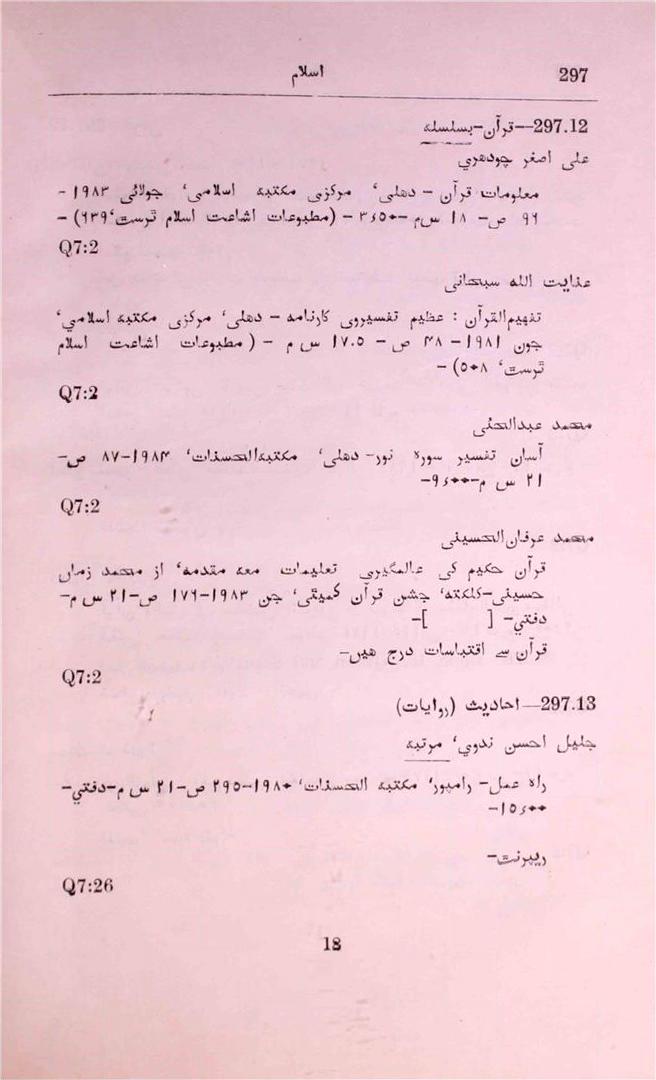 297 اسلام
297.12—قرآن–بسلسلہ
علی اصغر چودھری
معلومات قرآن – دھلی، مرکزی مکتبہ اسلامی، جولائی ۱۹۸۳–
۹۶ ص– ۱۸ س م –۳٫۵۰ – (مطبوعات اشاعت اسلام ٹرسٹ،۶۳۹) –
Q7:2
عنایت اللہ سبحانی
تفہیم‌القرآن : عظیم تفسیروی کارنامہ – دھلی، مرکزی مکتبہ اسلامی،
جون ۱۹۸۱– ۴۸ ص – ۱۷.۵ س م – (مطبوعات اشاعت اسلام
ٹرسٹ، ۵۰۸) –
Q7:2
محمد عبدالحئی
آسان تفسیر سورہ نور– دھلی، مکتبہ‌الحسنات، ۱۹۸۴–۸۷ ص–
۲۱ س م–۹٫۰۰–
Q7:2
محمد عرفان‌الحسینی
قرآن حکیم کی عالمگیری تعلیمات معہ مقدمہ، از محمد زماں
حسینی–کلکتہ، جشن قرآن کمیٹی، جن ۱۹۸۳–۱۷۶ ص–۲۱ س م–
دفتی– [ ]–
قرآن سے اقتباسات درج ھیں–
Q7:2
297.13—احادیث (روایات)
جلیل احسن ندوی، مرتبہ
راہ عمل– رامپور، مکتبہ الحسنات، ۱۹۸۰–۲۹۵ ص–۲۱ س م–دفتی–
۱۵٫۰۰–
ریپرنٹ–
Q7:26
18